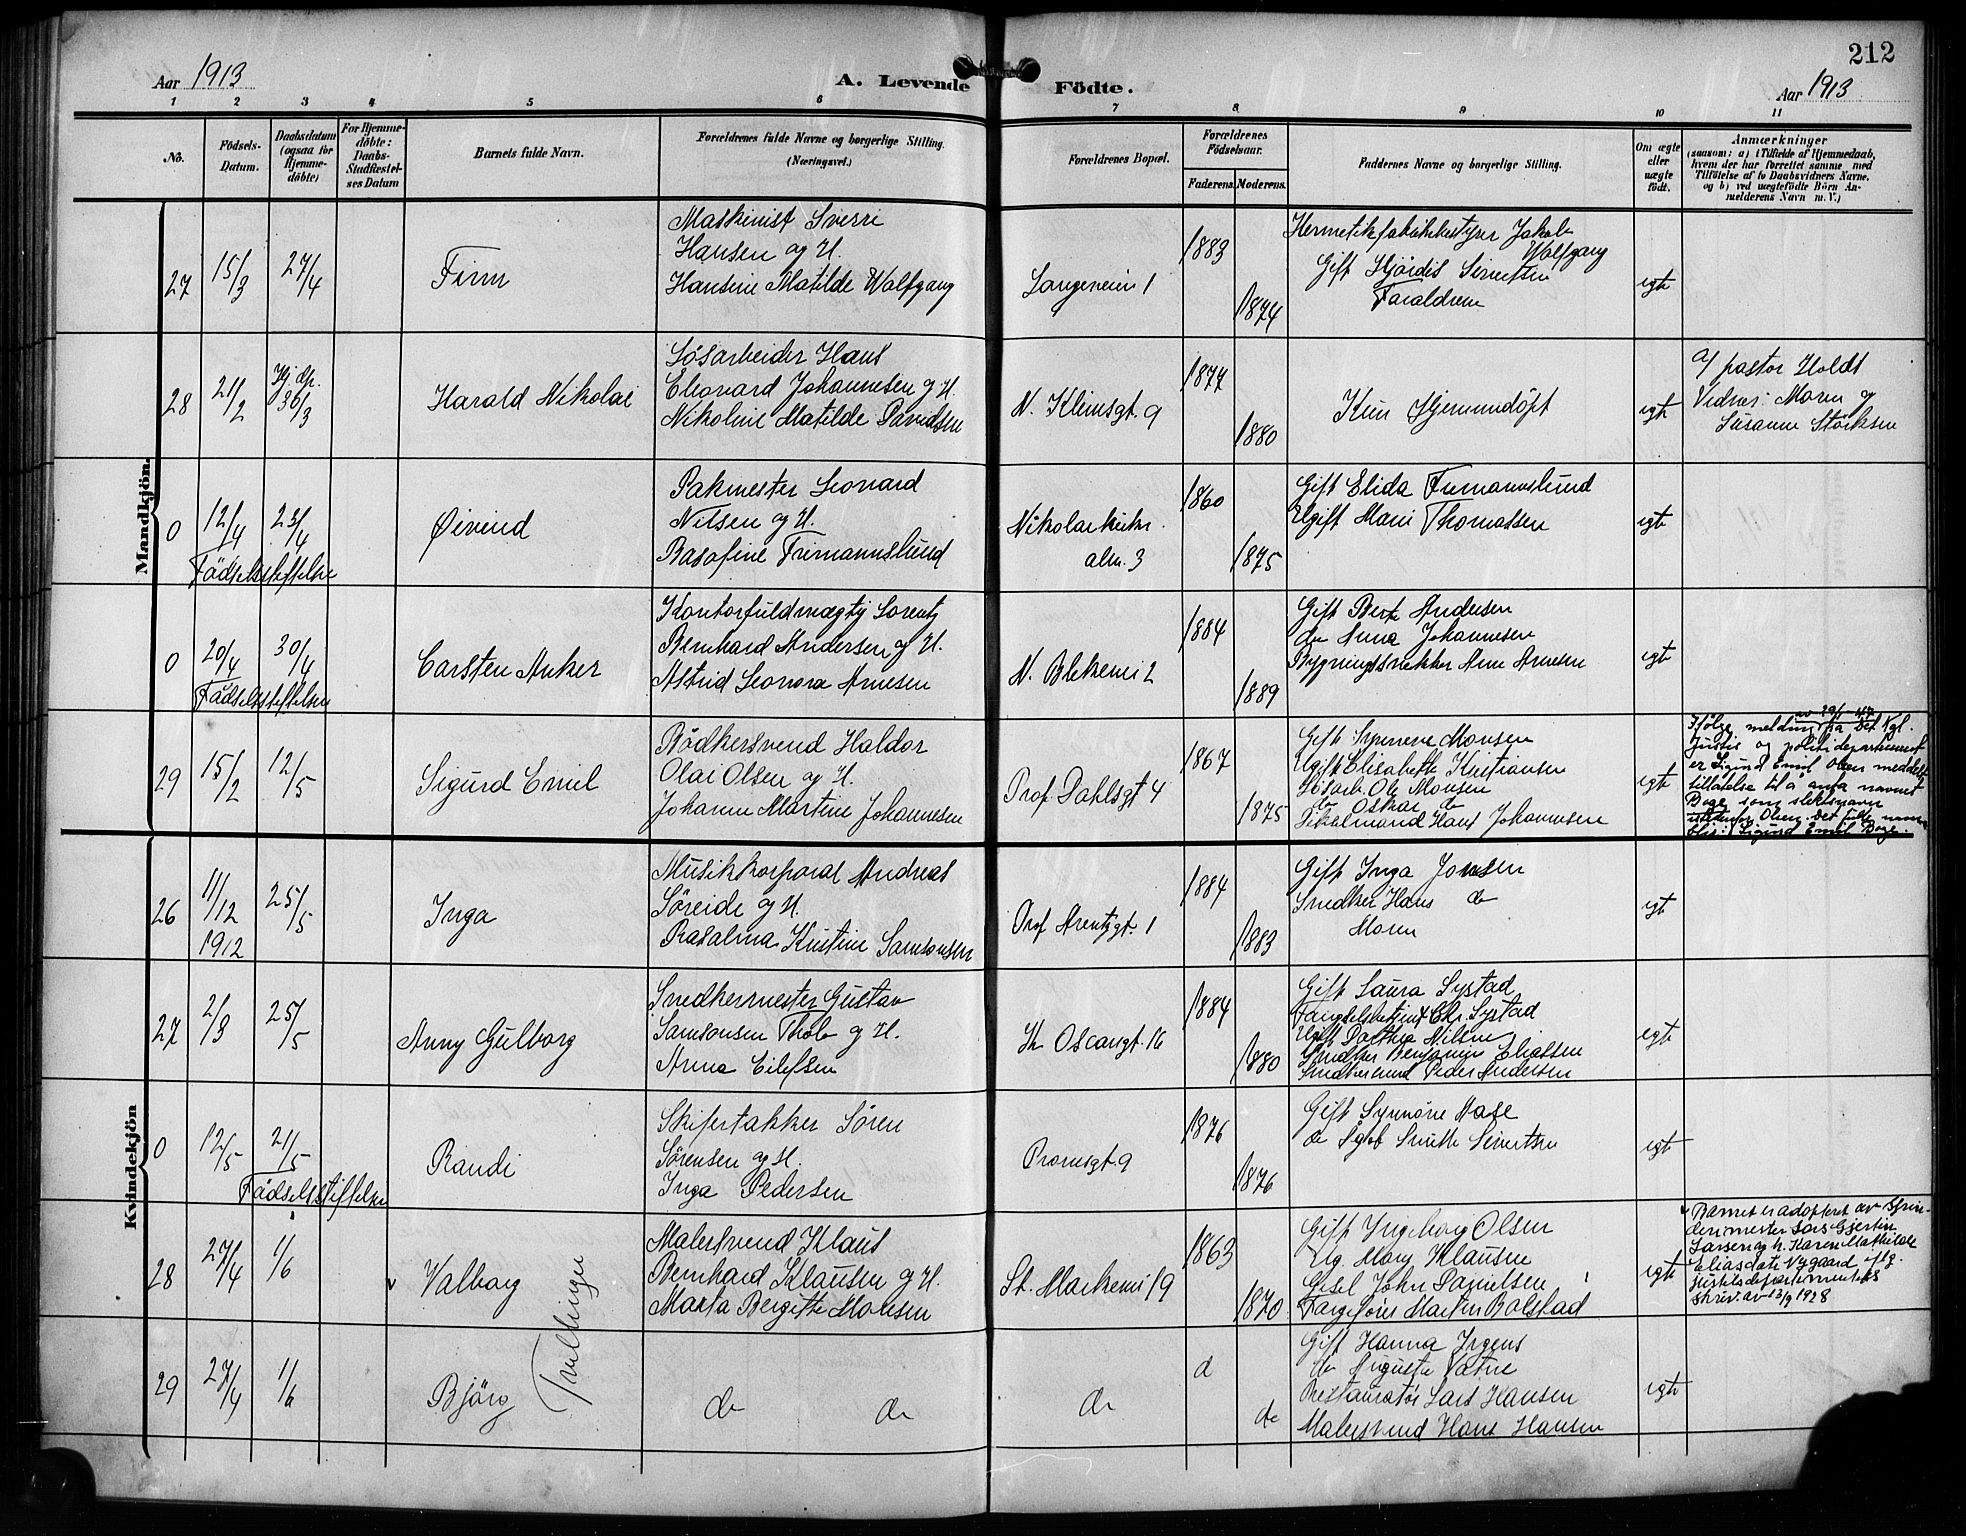 212
Aar 1913
A. Levende Födte.
Aar 1913
1 2 3 4 5 6 7 8 9 10 11
No.
Födsels-
Datum.
Daabsdatum
(ogsaa for
Hjemme-
döbte)
For Hjemme-
döbte:
Daabs-
Stadfæstel-
ses Datum
Barnets fulde Navn.
Forældrenes fulde Navne og borgerlige Stilling.
(Næringsvei.)
Forældrenes Bopæl.
Forældrenes
Födselsaar.
Faderens. Moderens.
Faddernes Navne og borgerlige Stilling.
Om ægte
eller
uægte
födt.
Anmærkninger
(saasom: a) i Tilfælde af Hjemmedaab,
hvem der har forrettet samme, med
Tilföielse af to Daabsvidners Navne,
og b) ved uægtefödte Börn An-
melderens Navn m. V.)
Mandkjön.
27 15/3 27/4
Finn
Maskinist Sverre
Hansen og H.
Hansine Matilde Wolfgang
Langeveien 1
1883
1874
Hermetikfabrikbestyrer Jakob
Wolfgang
Gift Hjördis Sivertsen
Forældrene
egte
28 21/2
Hj. dp.
30/3
Harald Nikolai
Løsarbeider Hans
Eleonard Johannesen og H.
Nikoline Matilde Davidsen
N. Kleivsgt. 9
1877
1880
Kun Hjemmedöpt
egte
af pastor Holdt
Vidner: Moren og
Susanne Störksen
0 12/4 23/4
Fødselsstiftelse
Øivind
Pakmester Leonard
Nilsen og H.
Basofine Frimannslund
Nikolaikirke
alm. 3
1860
1875
Gift Elida Frimannslund
Ugift Marie Thomassen
egte
0 20/4 30/4
Fødselsstiftelsen
Carsten Anker
Kontorfuldmægtig Lorentz
Bernhard Andersen og H.
Astrid Leonora Arnesen
N. Blekevei 2
1884
1889
Gift Berta Andersen
do Anna Johannesen
Bygningssnekker Arne Arnesen
egte
29 15/2 12/5
Sigurd Emil
Bødkersvend Haldor
Olai Olsen og H.
Johanne Martine Johannesen
Prof. Dahlsgt 4
1867
1875
Gift Synneve Monsen
Ugift Elisabeth Kristiansen
Løsarb. Ole Monsen
do Oskar do
Hans Johannesen
egte
Ifølge melding fra Det Kgl.
Justis og politidepartement
er Sigurd Emil Olsen meddelt
tillatelse til å anta navnet
Boge som slektsnavn
istedenfor Olsen. Det fulle navn
blir: Sigurd Emil Boge.
Kvindekjön
26 11/12 1912 25/5
Inga
Musikkorporal Andreas
Søreide og H.
Rasalina Kristine Samsonsen
Prof. Arentzgt. 1
1884
1883
Gift Inga Jonsen
Snedker Hans do
Moren
egte
27 2/3 25/5
Anny Gulborg
Snedkermester Gustav
Samsonsen Thob og H.
Anna Eilefsen
Kr Oscarsgt. 16
1884
1880
Gift Laura Systad
Fængselsbetjent Chr. Systad
Ugift Dorthea Nilsen
Snedker Benjamin Eliassen
Snedkersvend Peder Andersen
egte
0 12/5 21/5
Fødselsstiftelsen
Randi
Skifertækker Sören
Sörensen og H.
Inga Pedersen
Promsgt. 9
1876
1876
Gift Synnöve Hage
egte
28 27/4 1/6
Valborg
Malersvend Klaus
Bernhard Klausen og H.
Marta Bergitte Monsen
St. Markevei 19
1863
1870
Gift Ingeborg Olsen
Ug. Mary Klausen
Gesel John Danielsen
Martin Bolstad
egte
Barnet er adoptert av Spin-
derimester Lars Gjertin
Larsen og h. Karen Mathilde
Eliasdatr. Nygaard iflg.
Justisdepartementets
skriv. av 13/9 1928
Tvillinger
29 27/4 1/6
Björg
do do
do
do
do
Gift Hanna Irgens
do Augusta Vatne
Restauratör Lars Hansen
Malersvend Hans Hansen
egte